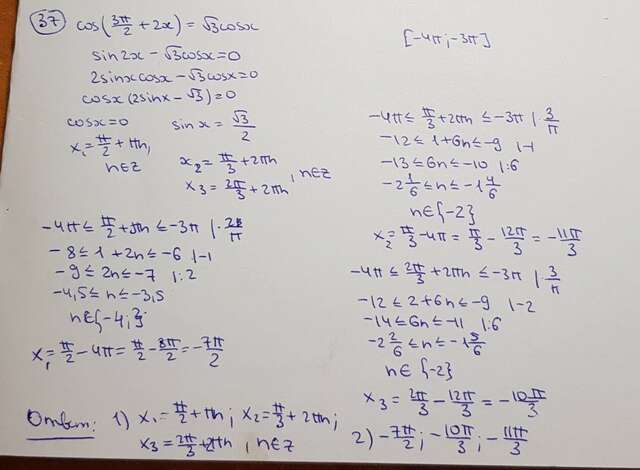 37 cos(3π/2 + 2x) = √3cosx
[-4π; -3π]
sin2x - √3cosx = 0
2sinxcosx - √3cosx = 0
cosx(2sinx - √3) = 0
cosx = 0 sinx = √3/2
x₁ = π/2 + πn, n∈Z
x₂ = π/3 + 2πn
x₃ = 2π/3 + 2πn, n∈Z
-4π ≤ π/2 + πn ≤ -3π | · 2/π
-8 ≤ 1 + 2n ≤ -6 |-1
-9 ≤ 2n ≤ -7 |:2
-4,5 ≤ n ≤ -3,5
n∈{-4;}
x₁ = π/2 - 4π = π/2 - 8π/2 = -7π/2
-4π ≤ π/3 + 2πn ≤ -3π | · 3/π
-12 ≤ 1 + 6n ≤ -9 |-1
-13 ≤ 6n ≤ -10 |:6
-2 1/6 ≤ n ≤ -1 4/6
n∈{-2}
x₂ = π/3 - 4π = π/3 - 12π/3 = -11π/3
-4π ≤ 2π/3 + 2πn ≤ -3π | · 3/π
-12 ≤ 2 + 6n ≤ -9 |-2
-14 ≤ 6n ≤ -11 |:6
-2 2/6 ≤ n ≤ -1 5/6
n∈{-2}
x₃ = 2π/3 - 12π/3 = -10π/3
Ответ: 1) x₁ = π/2 + πn; x₂ = π/3 + 2πn;
x₃ = 2π/3 + 2πn, n∈Z 2) -7π/2; -10π/3; -11π/3